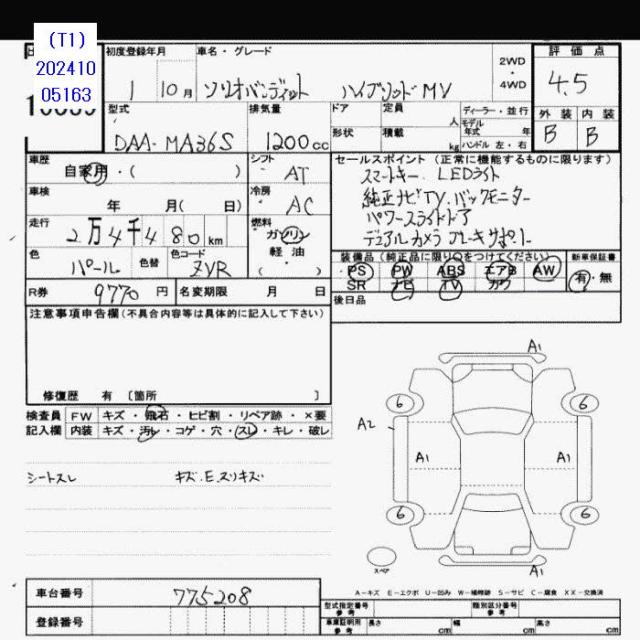 (T1)
202410
05163
初度登録年月
車名・グレード
2WD
・
4WD
評価点
1 10月
ソリオバンディット ハイブリッドMV
4.5
型式
排気量
ドア
定員
人
ディーラー・並行
モデル
年式 年
外装 内装
DAA-MA36S
1200cc
形状
積載
kg
ハンドル 左・右
B B
車歴
自家用・( )
シフト
AT
セールスポイント(正常に機能するものに限ります)
スマートキー. LEDライト
純正ナビTV.バックモニター
パワースライドドア
デュアルカメラブレーキサポート
車検
年 月( 日)
冷房
AC
走行
2万4千480km
燃料
ガソリン
軽油
( )
色
パール
色替
色コード
ZVR
装備品(純正品に限り○をつけてください)
新車保証書
PS PW ABS エアB AW
SR ナビ TV カワ
有・無
R券
9770円
名変期限 月 日
後日品
注意事項申告欄(不具合内容等は具体的に記入して下さい)
修復歴 有〔箇所 〕
検査員
記入欄
FW キズ・飛石・ヒビ割・リペア跡・×要
内装 キズ・汚レ・コゲ・穴・スレ・キレ・破レ
シートスレ キズ.E.スリキズ
A1
6 6
A2
A1 A1
6 6
A1
スペア
A-キズ E-エクボ U-凹み W-補修跡 S-サビ C-腐食 XX-交換済
車台番号
775208
登録番号
型式指定番号
参考
類別区分番号
参考
車庫証明用
参考
長さ cm
幅 cm
高さ cm